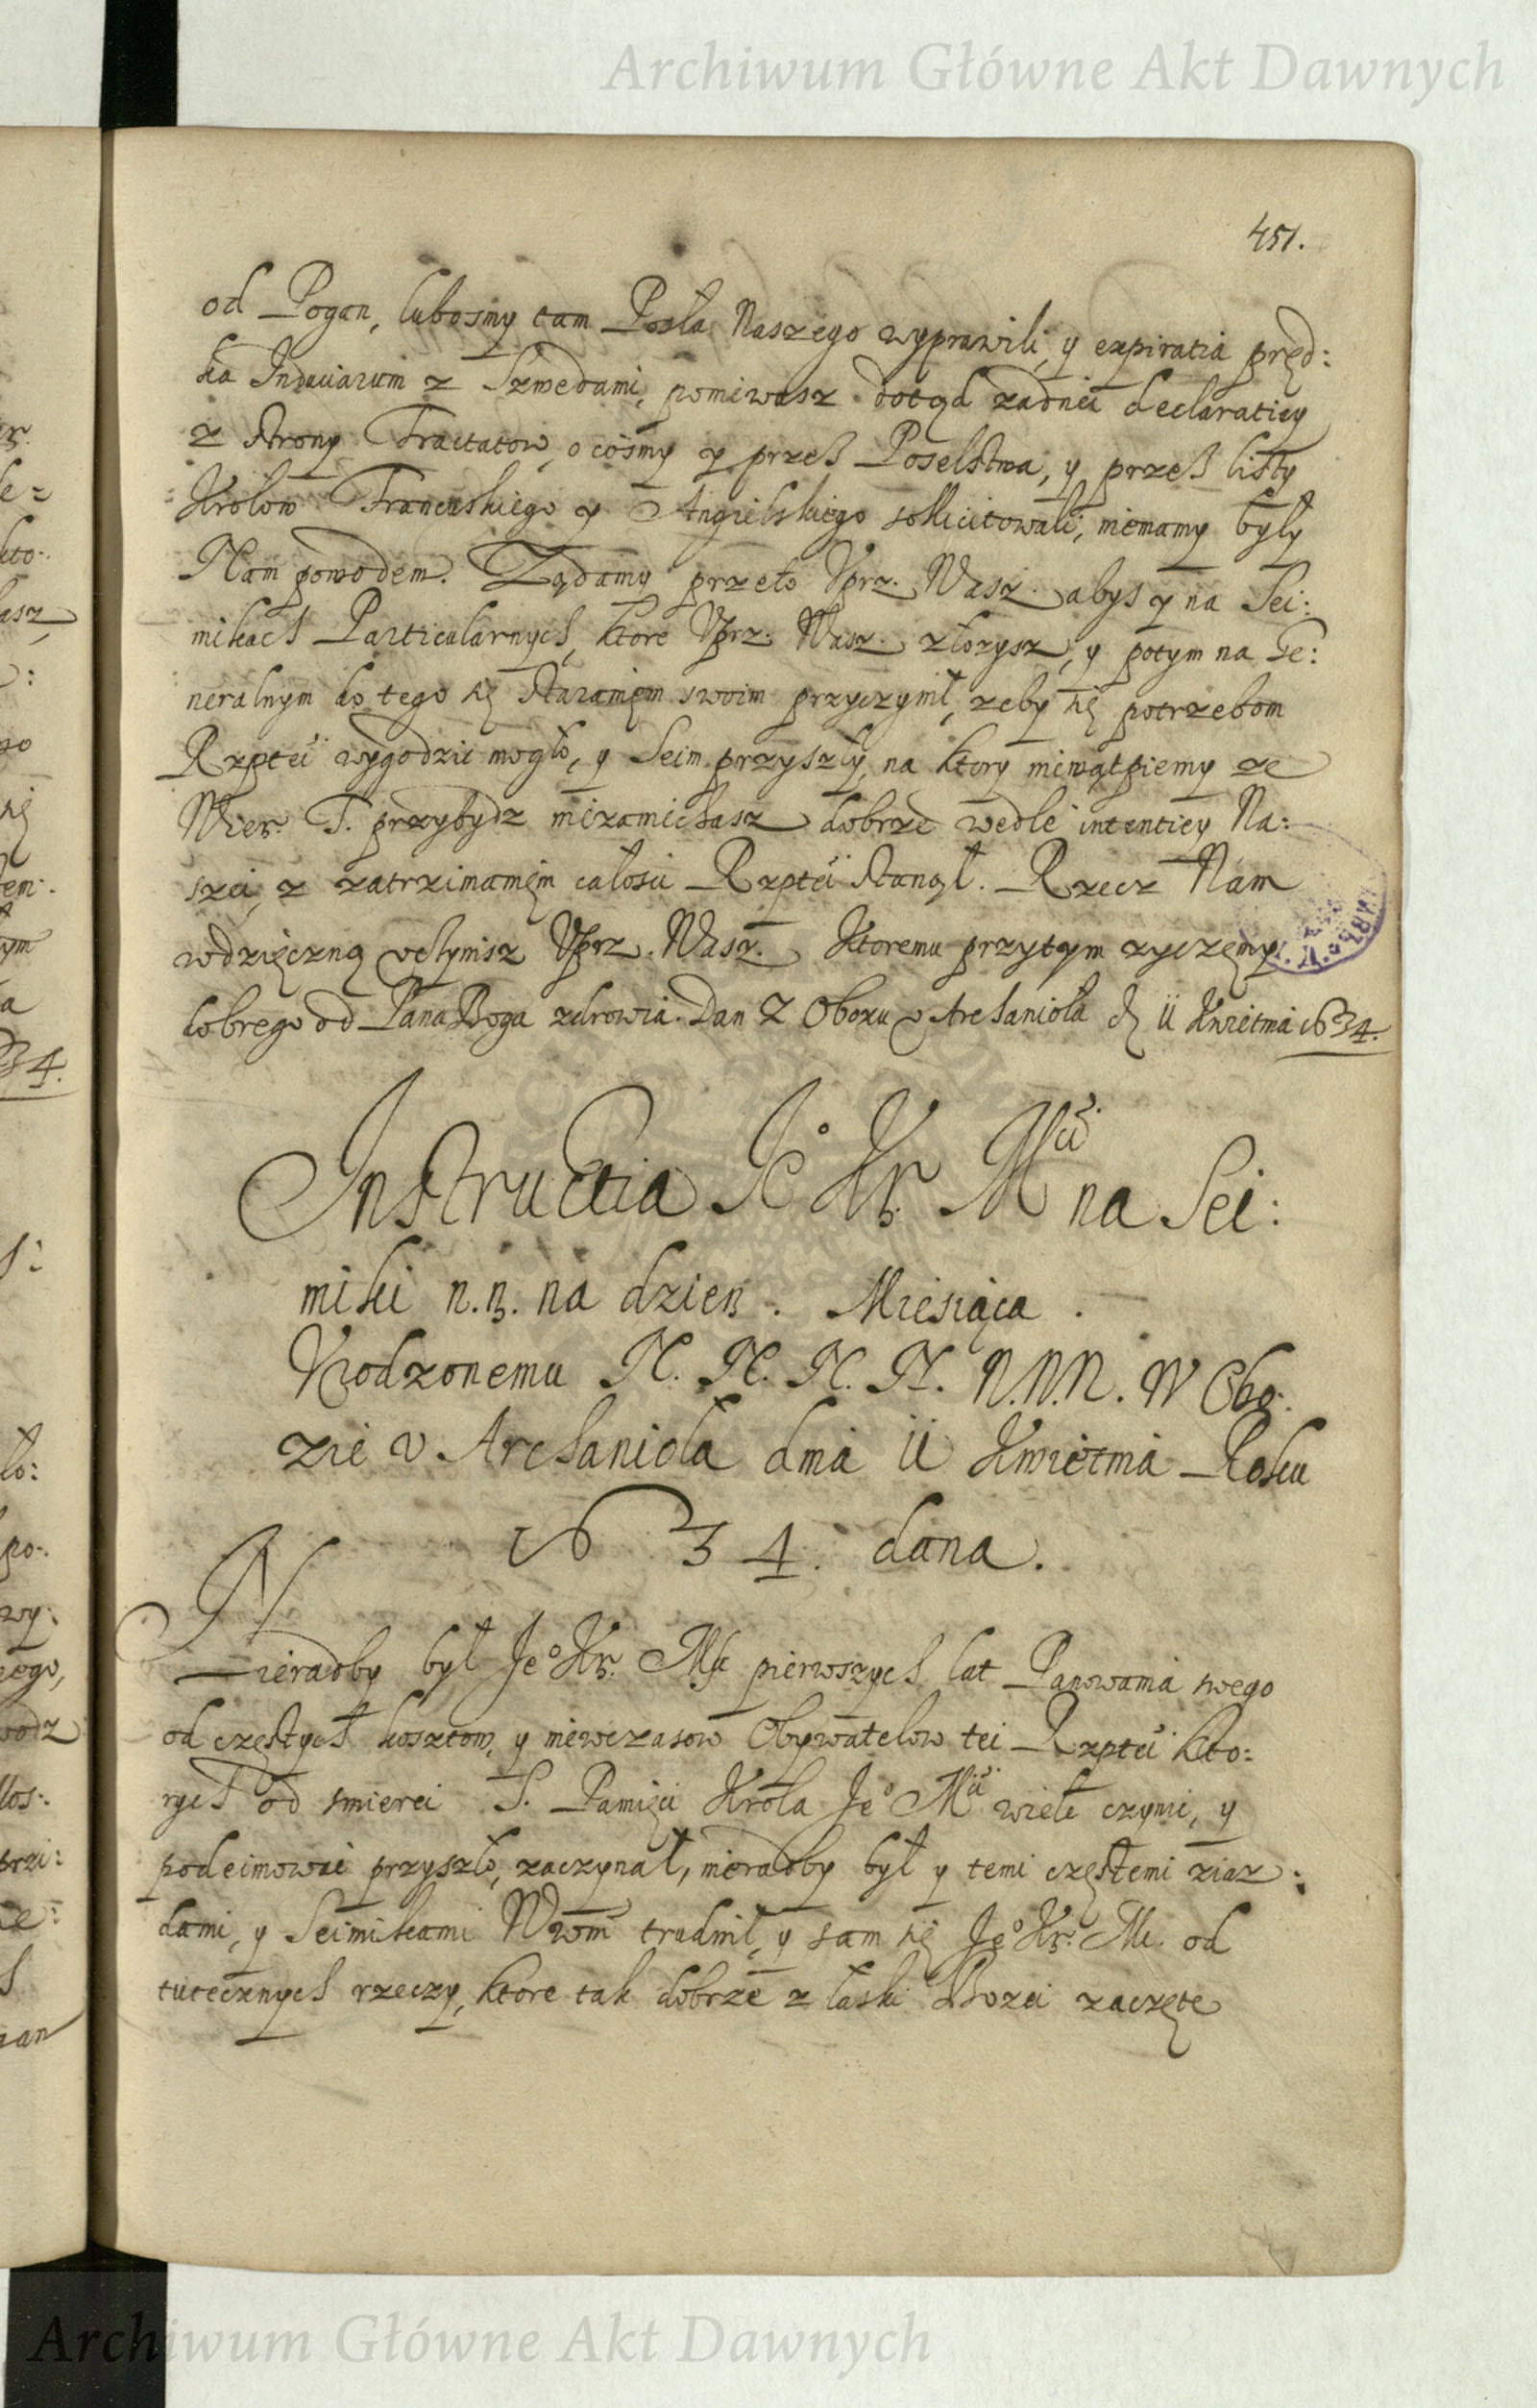 Archiwum Główne Akt Dawnych
451.
od Pogan, lubosmy tam Posła Naszego wyprawili, y expiratia pręd:
ka Induciarum z Szwedami, poniewasz dotąd zadnei declaratiey
z strony Tractatow, o cosmy y przeß Poselstwa, y przeß listy
Krolow Francuskiego y Angielskiego sollicitowali, niemamy były
Nam powodem. Ządamy przeto Vprz. Wasz. abys y na Sei:
mikach Particularnych, ktore Vprz. Wasz. złozysz, y potym na Ge:
neralnym do tego się staraniem swoim przyczynił, zeby się potrzebom
Rzptei wygodzic mogło, y Seim przyszły, na ktory niewątpiemy ze
Wier. T. przybydz niezaniechasz dobrze wedle intentiey Na:
szei, z zatrzimaniem całosci Rzptei stanął. Rzecz Nam
wdzięczną vczynisz Vprz. Wasz. Ktoremu przytym zyczęmy
dobrego od Pana Boga zdrowia. Dan z Obozu v Archanioła d. 11 Kwietnia 1634.
Instructia Je° Kr. Mci na Sei:
miki n.n. na dzien . Miesiąca .
Vrodzonemu N. N. N. N. N.N.N. W Obo:
zie v Archanioła dnia 11 Kwietnia Roku
1634. dana.
Nieradby był Je° Kr. Mć pierwszych lat Panowania swego
od częstych kosztow, y niewczasow Obywatelow tei Rzptei kto:
rych od smierci S. Pamięci Krola Je° Mci wiele czynic, y
podeimowac przyszło, zaczynał, nieradby był y temi częstemi ziaz:
dami, y Seimikami Wwm trudnił, y sam się Je° Kr. M. od
tutecznych rzeczy, ktore tak dobrze z łaski Bozei zaczęte
Archiwum Główne Akt Dawnych